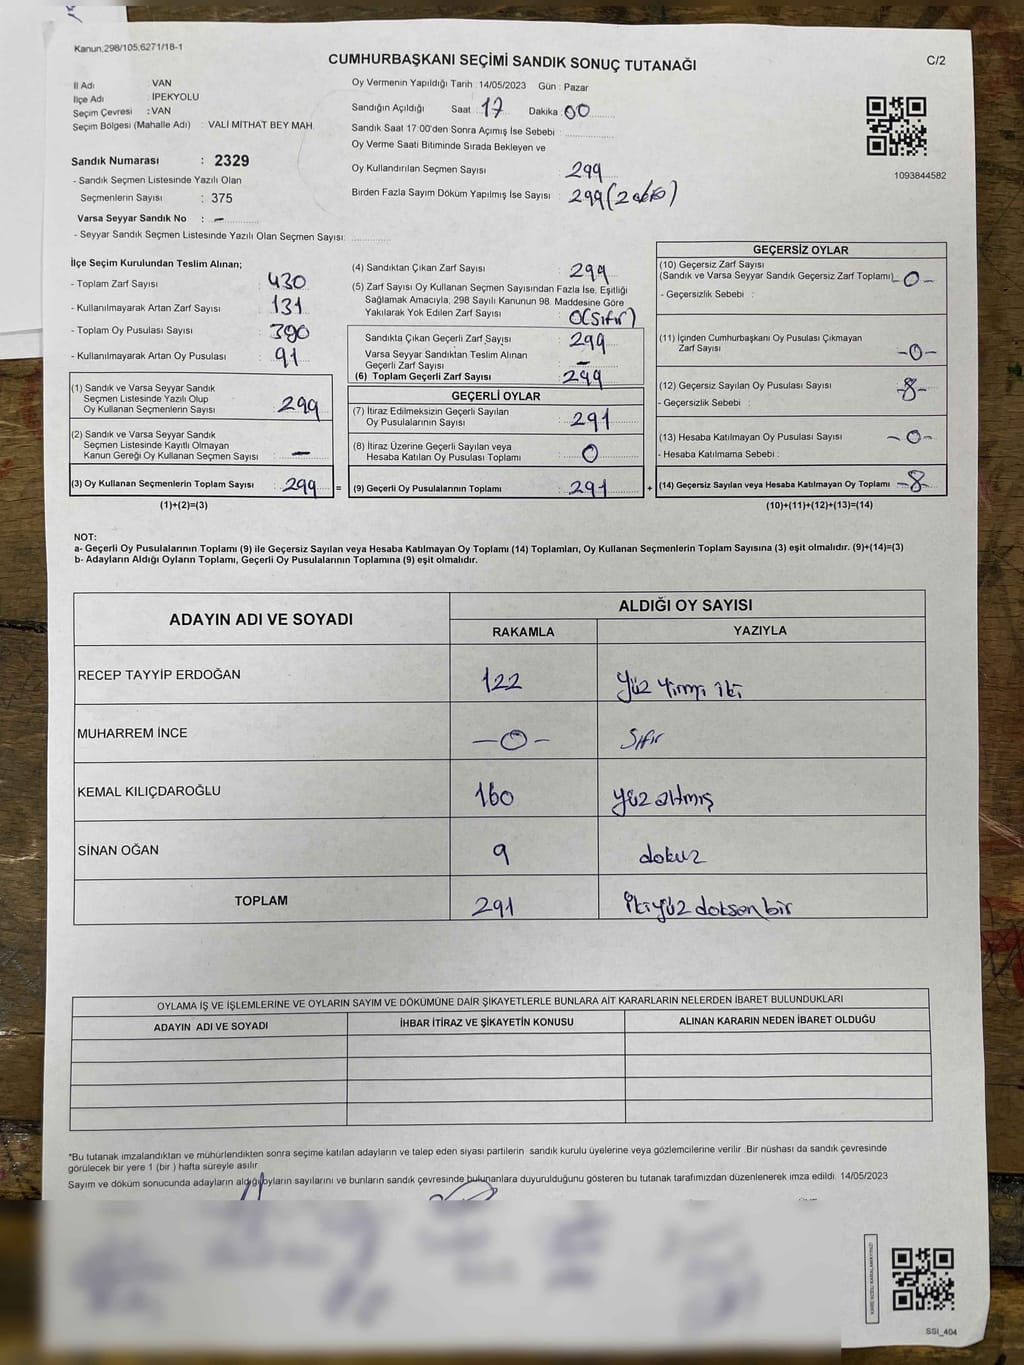 Kanun,298/105,6271/18-1
CUMHURBAŞKANI SEÇİMİ SANDIK SONUÇ TUTANAĞI
C/2
İl Adı : VAN
İlçe Adı : İPEKYOLU
Seçim Çevresi : VAN
Seçim Bölgesi (Mahalle Adı) : VALİ MİTHAT BEY MAH.
Sandık Numarası : 2329
- Sandık Seçmen Listesinde Yazılı Olan
Seçmenlerin Sayısı : 375
Varsa Seyyar Sandık No : -
- Seyyar Sandık Seçmen Listesinde Yazılı Olan Seçmen Sayısı:
Oy Vermenin Yapıldığı Tarih : 14/05/2023 Gün : Pazar
Sandığın Açıldığı Saat : 17 Dakika : 00
Sandık Saat 17:00'den Sonra Açımış İse Sebebi :
Oy Verme Saati Bitiminde Sırada Bekleyen ve
Oy Kullandırılan Seçmen Sayısı : 299
Birden Fazla Sayım Döküm Yapılmış İse Sayısı : 299 (2
1093844582
İlçe Seçim Kurulundan Teslim Alınan;
- Toplam Zarf Sayısı : 430
- Kullanılmayarak Artan Zarf Sayısı : 131
- Toplam Oy Pusulası Sayısı : 390
- Kullanılmayarak Artan Oy Pusulası : 91
(1) Sandık ve Varsa Seyyar Sandık
Seçmen Listesinde Yazılı Olup
Oy Kullanan Seçmenlerin Sayısı : 299
(2) Sandık ve Varsa Seyyar Sandık
Seçmen Listesinde Kayıtlı Olmayan
Kanun Gereği Oy Kullanan Seçmen Sayısı : -
(3) Oy Kullanan Seçmenlerin Toplam Sayısı : 299 =
(1)+(2)=(3)
(4) Sandıktan Çıkan Zarf Sayısı : 299
(5) Zarf Sayısı Oy Kullanan Seçmen Sayısından Fazla İse, Eşitliği
Sağlamak Amacıyla, 298 Sayılı Kanunun 98. Maddesine Göre
Yakılarak Yok Edilen Zarf Sayısı : 0(sıfır)
Sandıkla Çıkan Geçerli Zarf Sayısı : 299
Varsa Seyyar Sandıktan Teslim Alınan
Geçerli Zarf Sayısı : -
(6) Toplam Geçerli Zarf Sayısı : 299
GEÇERLİ OYLAR
(7) İtiraz Edilmeksizin Geçerli Sayılan
Oy Pusulalarının Sayısı : 291
(8) İtiraz Üzerine Geçerli Sayılan veya
Hesaba Katılan Oy Pusulası Toplamı : 0
(9) Geçerli Oy Pusulalarının Toplamı : 291 +
GEÇERSİZ OYLAR
(10) Geçersiz Zarf Sayısı
(Sandık ve Varsa Seyyar Sandık Geçersiz Zarf Toplamı) -0-
- Geçersizlik Sebebi :
(11) İçinden Cumhurbaşkanı Oy Pusulası Çıkmayan
Zarf Sayısı -0-
(12) Geçersiz Sayılan Oy Pusulası Sayısı -8-
- Geçersizlik Sebebi :
(13) Hesaba Katılmayan Oy Pusulası Sayısı -0-
- Hesaba Katılmama Sebebi :
(14) Geçersiz Sayılan veya Hesaba Katılmayan Oy Toplamı -8
(10)+(11)+(12)+(13)=(14)
NOT:
a- Geçerli Oy Pusulalarının Toplamı (9) ile Geçersiz Sayılan veya Hesaba Katılmayan Oy Toplamı (14) Toplamları, Oy Kullanan Seçmenlerin Toplam Sayısına (3) eşit olmalıdır. (9)+(14)=(3)
b- Adayların Aldığı Oyların Toplamı, Geçerli Oy Pusulalarının Toplamına (9) eşit olmalıdır.
ADAYIN ADI VE SOYADI ALDIĞI OY SAYISI
RAKAMLA YAZIYLA
RECEP TAYYİP ERDOĞAN 122 yüz yirmi iki
MUHARREM İNCE -0- Sıfır
KEMAL KILIÇDAROĞLU 160 yüz altmış
SİNAN OĞAN 9 dokuz
TOPLAM 291 ikiyüz doksan bir
OYLAMA İŞ VE İŞLEMLERİNE VE OYLARIN SAYIM VE DÖKÜMÜNE DAİR ŞİKAYETLERLE BUNLARA AİT KARARLARIN NELERDEN İBARET BULUNDUKLARI
ADAYIN ADI VE SOYADI İHBAR İTİRAZ VE ŞİKAYETİN KONUSU ALINAN KARARIN NEDEN İBARET OLDUĞU
*Bu tutanak imzalandıktan ve mühürlendikten sonra seçime katılan adayların ve talep eden siyasi partilerin sandık kurulu üyelerine veya gözlemcilerine verilir .Bir nüshası da sandık çevresinde
görülecek bir yere 1 (bir ) hafta süreyle asılır.
Sayım ve döküm sonucunda adayların aldığı oyların sayılarını ve bunların sandık çevresinde bulunanlara duyurulduğunu gösteren bu tutanak tarafımızdan düzenlenerek imza edildi. 14/05/2023
SSI_404